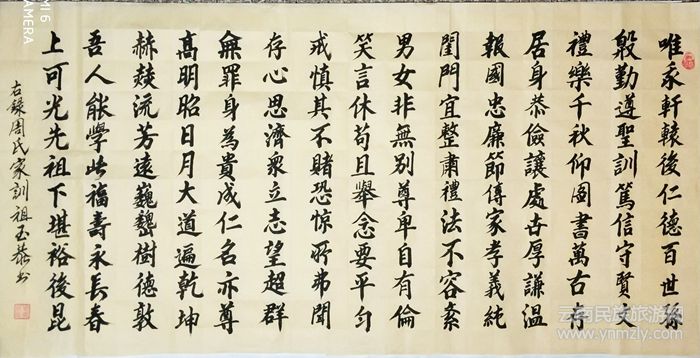 唯永軒轅後仁德百世
殷勤遵聖訓篤信守賢文
禮樂千秋仰圖書萬古存
居身恭儉讓處古厚謙溫
報國忠廉節傳家孝義純
閨門宜整肅禮法不容紊
男女非無別尊卑自有倫
笑言休苟且舉念要平勻
戒慎其不賭恐惊所弗聞
存心思濟衆立志望超群
無罪身為貴成仁名亦尊
高明昭日月大道遍乾坤
赫流芳遠巍巍樹德敦
吾人能學此福壽永長春
上可光先祖下堪裕後昆
右錄周氏家訓祖玉恭书
MI 6
CAMERA
云南民族旅游网
www.ynmzly.com